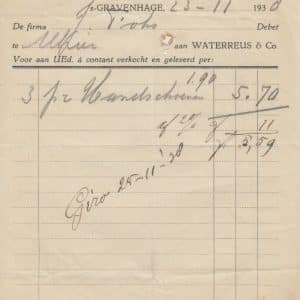 's-GRAVENHAGE, 23-11 1938
De firma Debet
te aan WATERREUS & Co
Voor aan UEd. à contant verkocht en geleverd per:
3 pr Handschoenen 1.90 5.70
af 2% f 11
f 5,59
Giro 25-11-'38